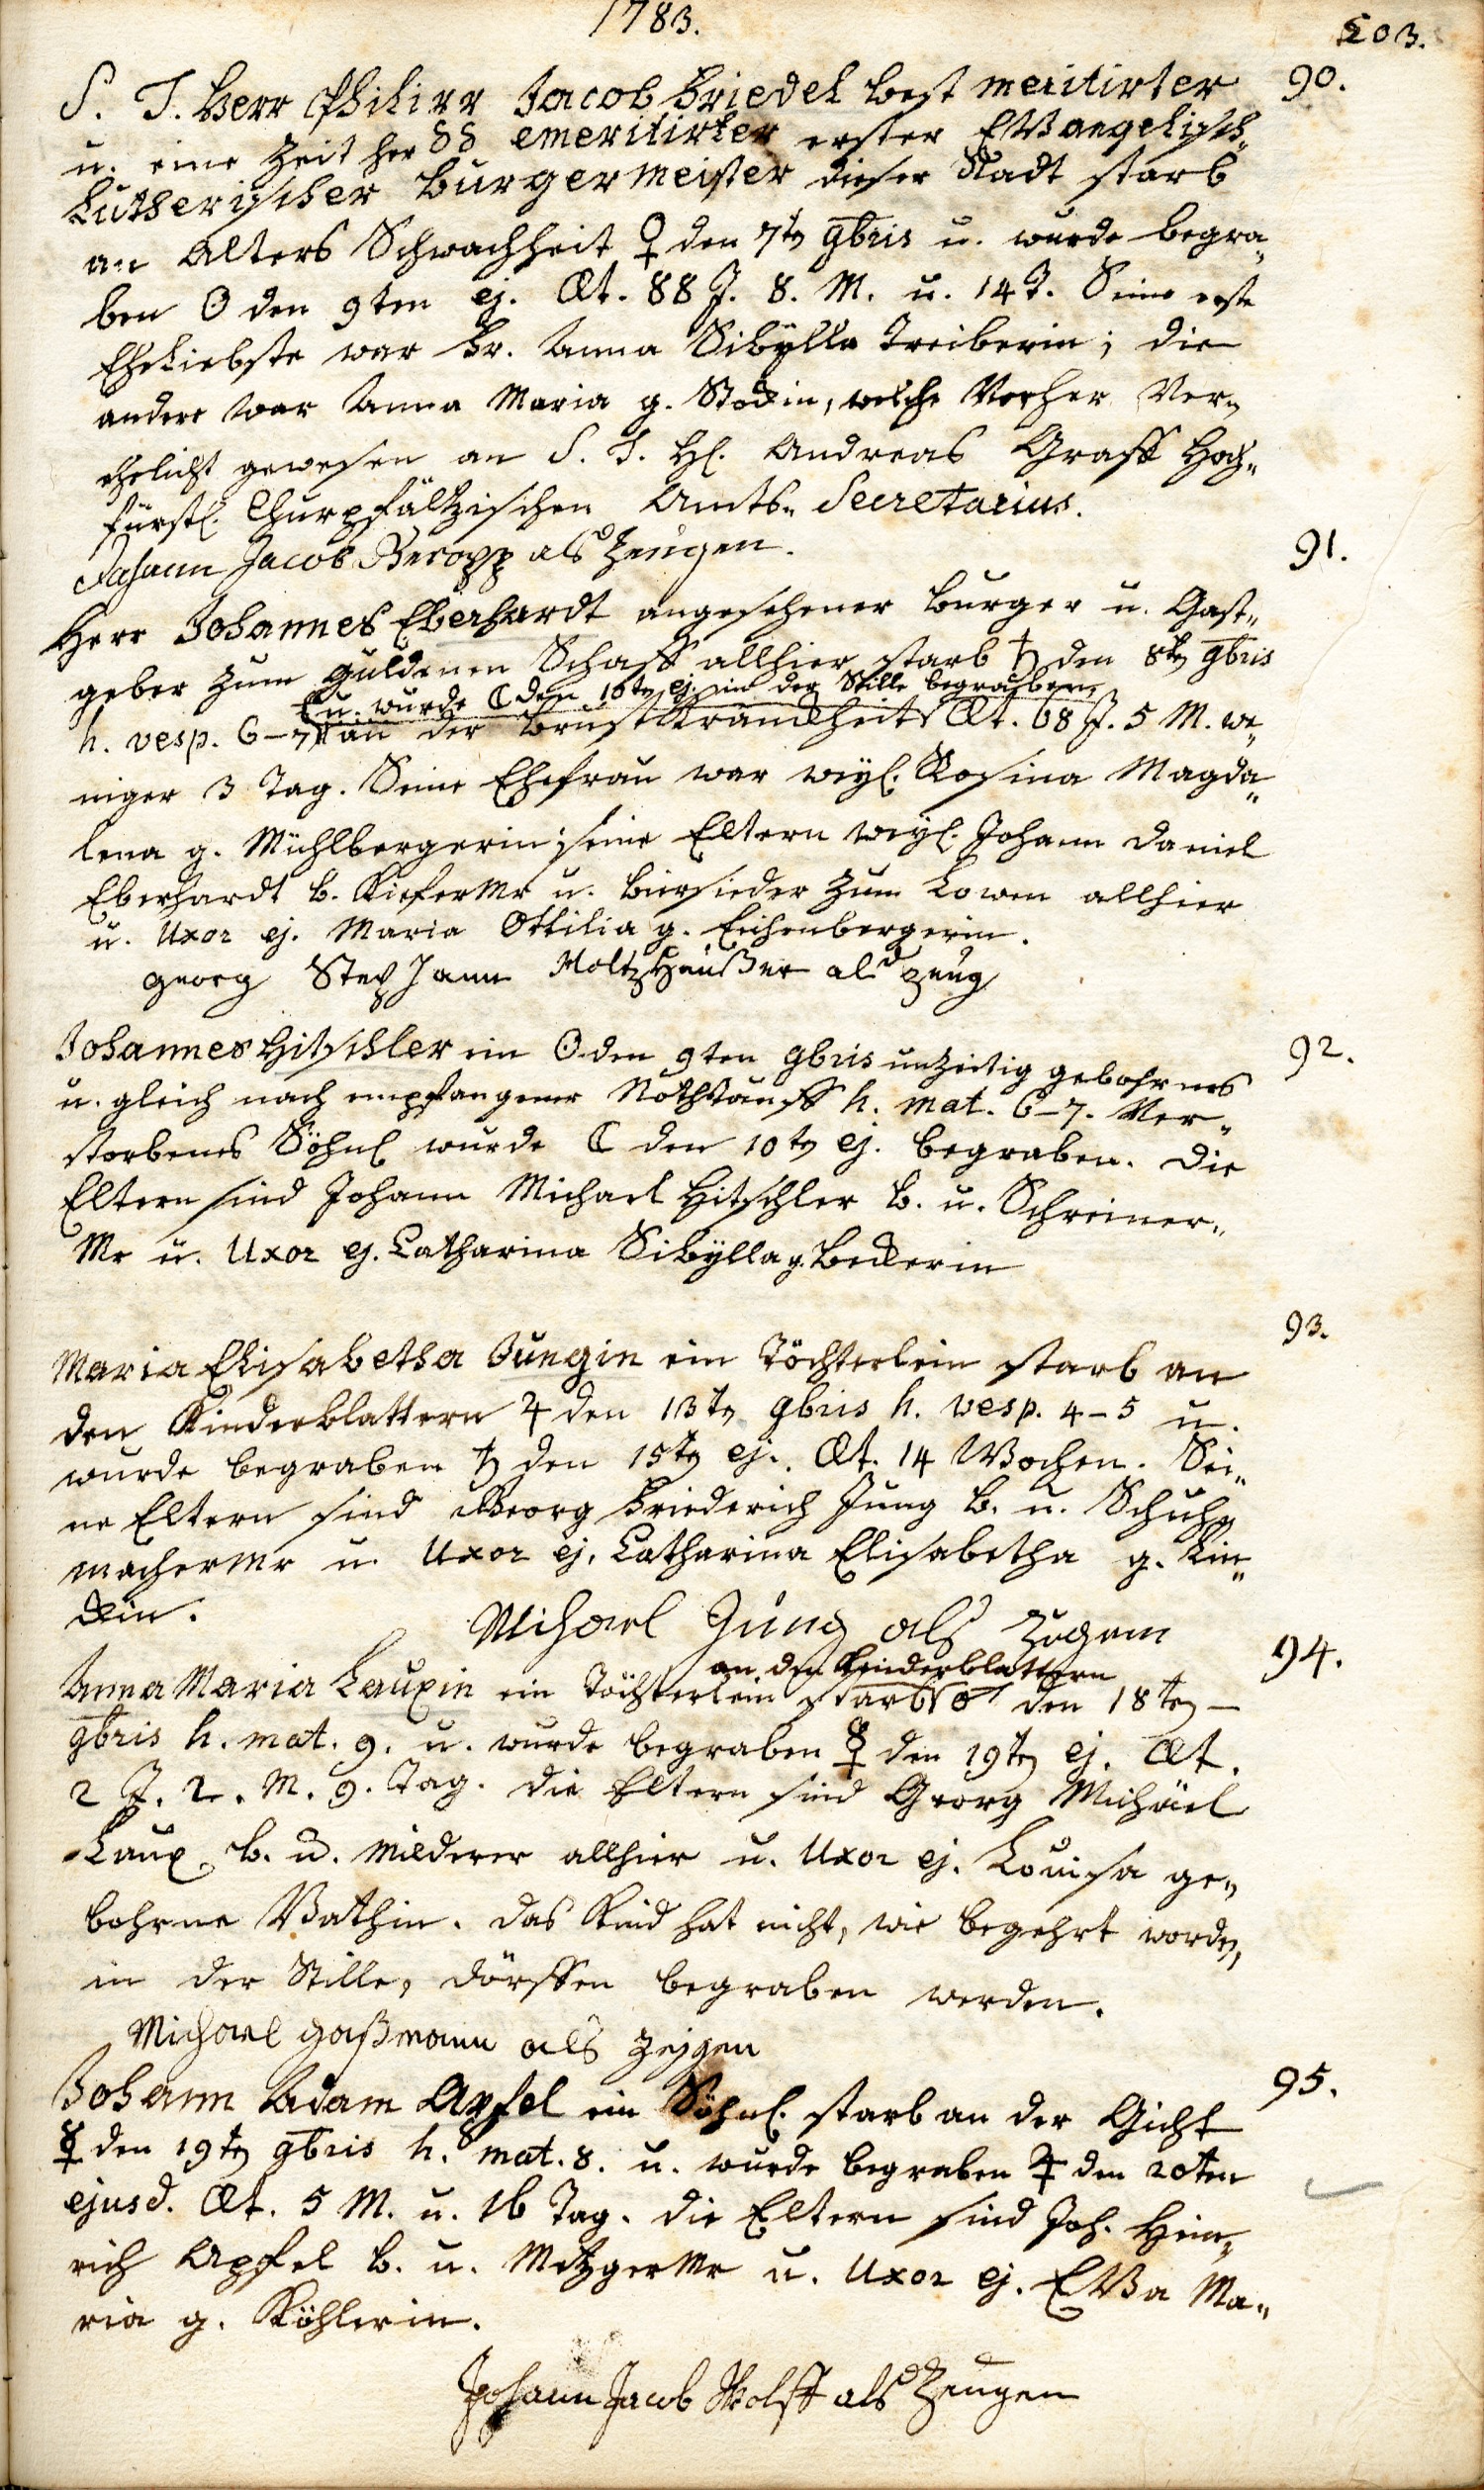 1783.
203.
90.
S. T. Herr Philipp Jacob Friedel best meritirter
u. eine Zeit her emeritirter erster Evangelisch„
Lutherischer Burgermeister dieser Stadt starb
an Alters Schwachheit ♀ den 7ten 9bris u. wurde begra„
ben ☉ den 9ten ej. Æt. 88 J. 8. M. u. 14 T. Seine erste
Eheliebste war Fr. Anna Sibÿlla Treiberin; die
andere war Anna Maria g. Stockin, welche Vorher Ver„
ehelicht gewesen an S. T. H. Andreas Graff Hoch„
fürstl. Churpfältzischen Amts„ Secretarius.
Johann Jacob als Zeugen.
91.
Herr Johannes Eberhardt angesehener Burger u. Gast„
geber zum guldenen Schaff allhier starb ♄ den 8ten 9bris
u. wurde ☾ den 10ten ej. in der Stille begraben
h. vesp. 6–7 an der Brustkranckheit Æt. 68 J. 5 M. we„
niger 3 Tag. Seine Ehefrau war weyl. Rosina Magda„
lena g. Mühlbergerin; seine Eltern weyl. Johann Daniel
Eberhardt b. Kiefermr u. Biersieder zum Lowen allhier
u. Uxor ej. Maria Ottilia g. Eichenbergerin.
georg Stephann Holtzhäußer als zeug
92.
Johannes Hitschler ein ☉ den 9ten 9bris unzeitig gebohrnes
u. gleich nach empfangener Nothtauff h. mat. 6–7. Ver„
storbenes Söhnl wurde ☾ den 10ten ej. begraben. Die
Eltern sind Johann Michael Hitschler b. u. Schreiner„
Mr u. Uxor ej. Catharina Sibÿlla g. Beckerin
93.
Maria Elisabetha Jungin ein Töchterlein starb an
den Kinderblattern ♃ den 13ten 9bris h. vesp. 4–5 u.
wurde begraben ♄ den 15ten ej. Æt. 14 Wochen. Sei„
ne Eltern sind Georg Friederich Jung b. u. Schuh„
machermr u. Uxor ej. Catharina Elisabetha g. Lin„
ckin.
Michael Jung als zugem
94.
an den Kinderblattern
Anna Maria Lauxin ein Töchterlein starb ♂ den 18ten
9bris h. mat. 9. u. wurde begraben ☿ den 19ten ej. Æt.
2 J. 2. M. 9. Tag. Die Eltern sind Georg Michäel
Laux b. u. allhier u. Uxor ej. Louisa ge„
bohrne Vathin. Das Kind hat nicht, wie begehrt worden,
in der Stille, dörffen begraben werden.
Michael gaßmann als zeygen
95.
Johann Adam Apfel ein Söhnl. starb an der Gicht
☿ den 19ten 9bris h. mat. 8. u. wurde begraben ♃ den 20ten
ejusd. Æt. 5 M. u. 16 Tag. Die Eltern sind Joh. Hein„
rich Apfel b. u. Metzgermr u. Uxor ej. Eva Ma„
ria g. Köhlerin.
Johann Jacob Wolff als Zeugen